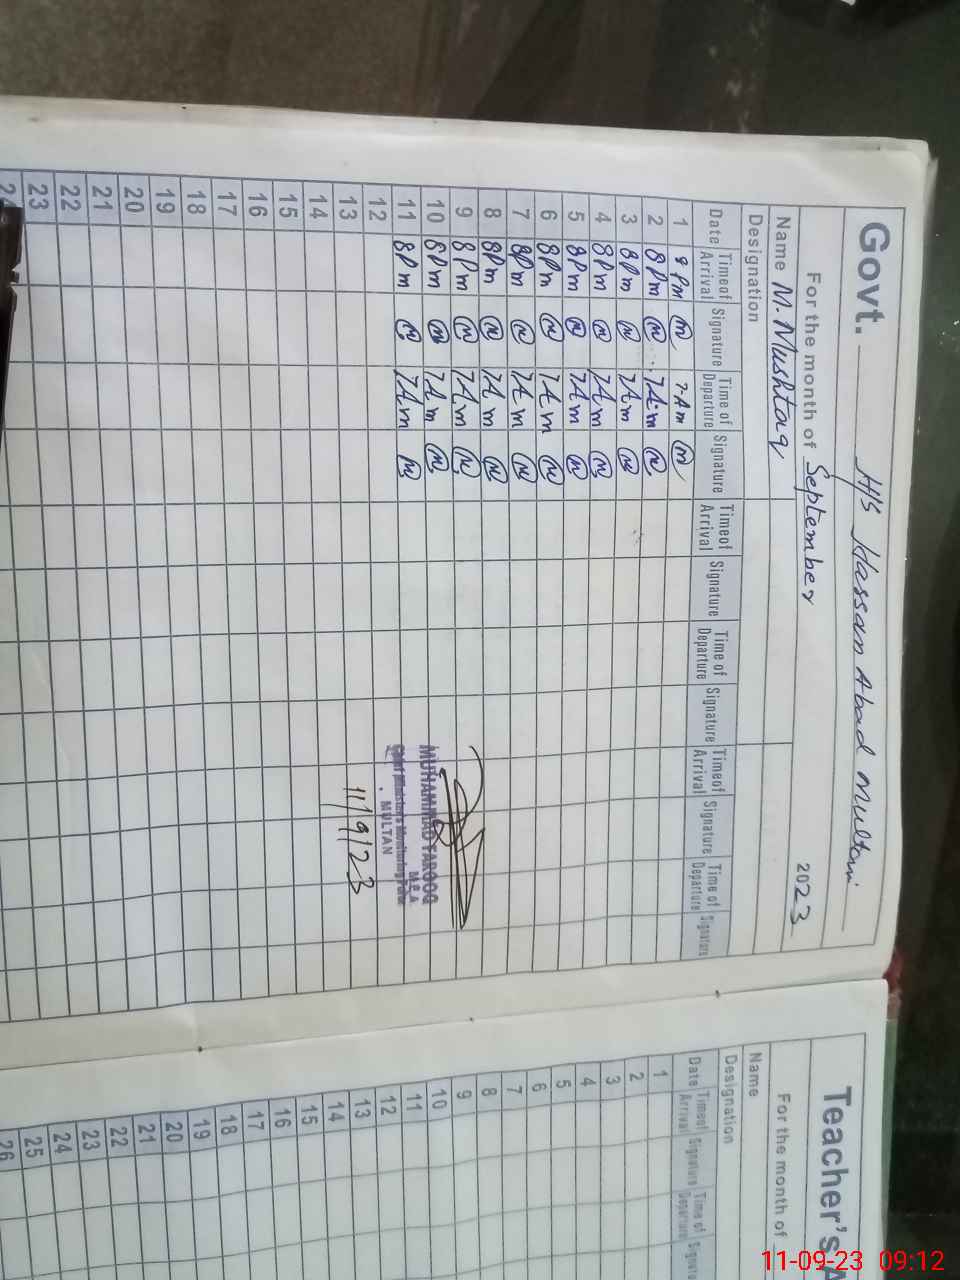 Govt. H/S Hassan Abad Multan
For the month of September 2023
Name M. Mushtaq
Designation
Date Timeof Arrival Signature Time of Departure Signature Timeof Arrival Signature Time of Departure Signature Timeof Arrival Signature Time of Departure Signature
1 8 Pm m 7-Am m
2 8 Pm m 7A.m m
3 8Pm m 7Am m
4 8Pm m 7Am m
5 8Pm m 7Am m
6 8Pm m 7Am m
7 8Pm m 7Am m
8 8Pm m 7Am m
9 8Pm m 7Am m
10 8Pm m 7Am m
11 8Pm m 7Am m
12
13
14
15
16
17
18
19
20
21
22
23
24
MUHAMMAD FAROOQ
M.E.A
Chief Minister's Monitoring Force
MULTAN
11/9/23
Teacher's A
For the month of
Name
Designation
Date Timeof Arrival Signature Time of Departure Signatu
1
2
3
4
5
6
7
8
9
10
11
12
13
14
15
16
17
18
19
20
21
22
23
24
25
26
11-09-23 09:12